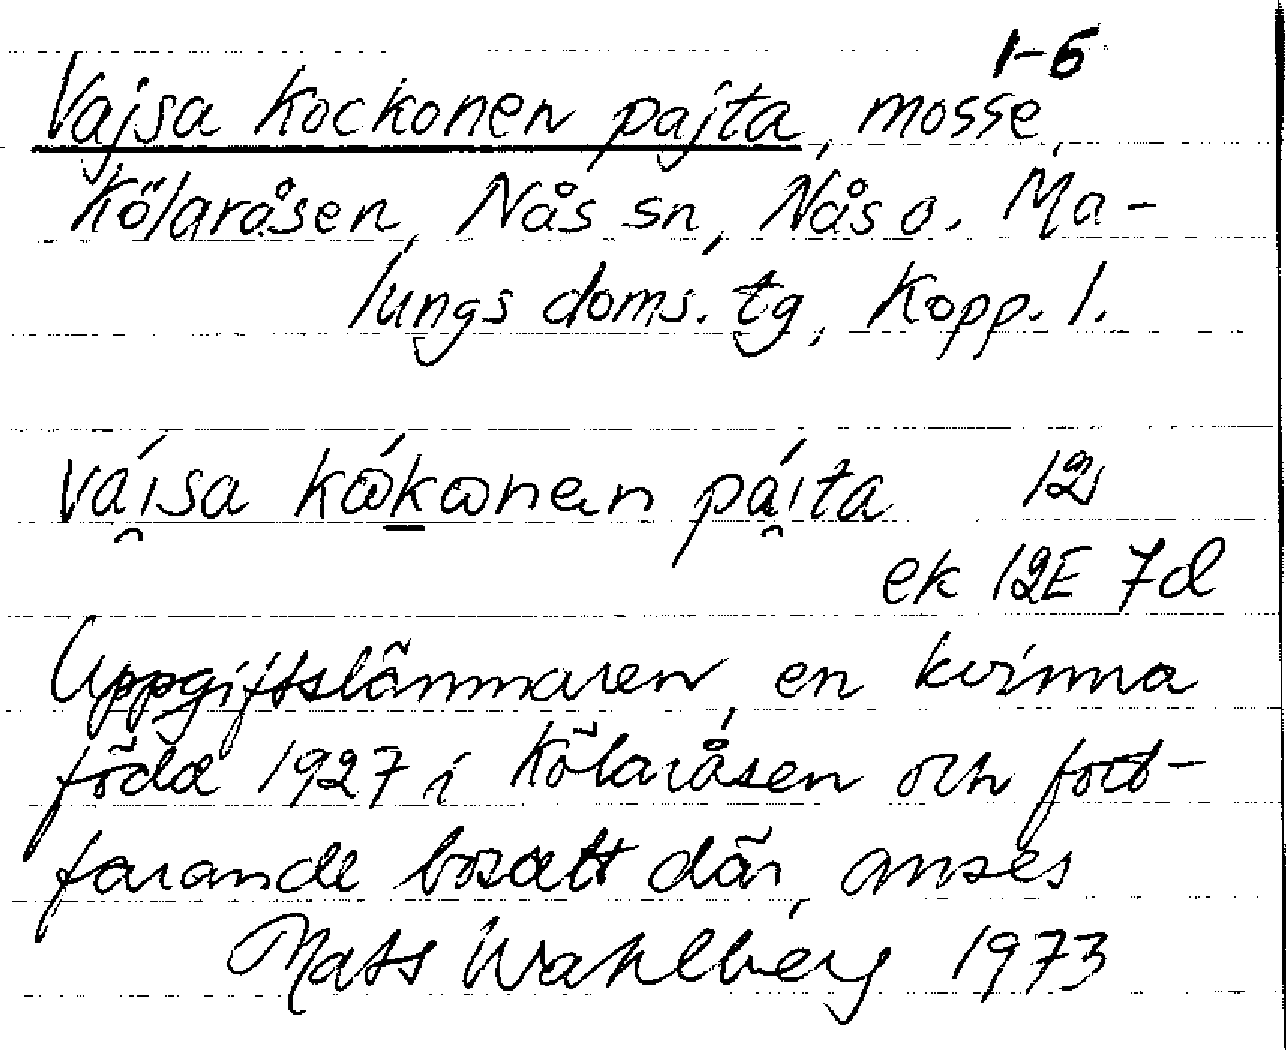 1-6
Vajsa Kockonen pajta, mosse,
Kölaråsen, Nås sn, Nås o. Ma-
lungs doms. tg, Kopp. l.
vái̯sa kɷ́kɷnen pái̯ta 12
ek 12E 7d
Uppgiftslämnaren, en kvinna
född 1927 i Kölaråsen och fort-
farande bosatt där, anses
Mats Wahlberg 1973